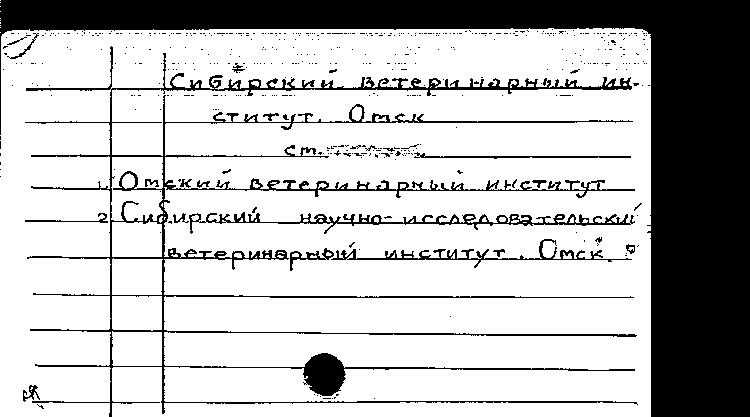 Сибирский ветеринарный ин-
ститут. Омск
ст.
1. Омский ветеринарный институт
2. Сибирский научно-исследовательский
ветеринарный институт. Омск.